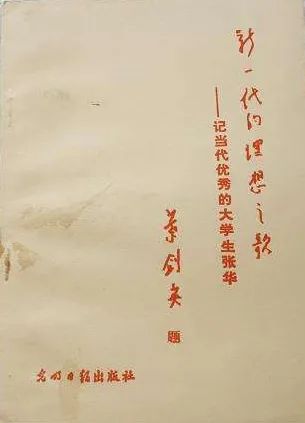 新一代的理想之歌
——记当代优秀的大学生张华
葉剑英 题
光明日报出版社